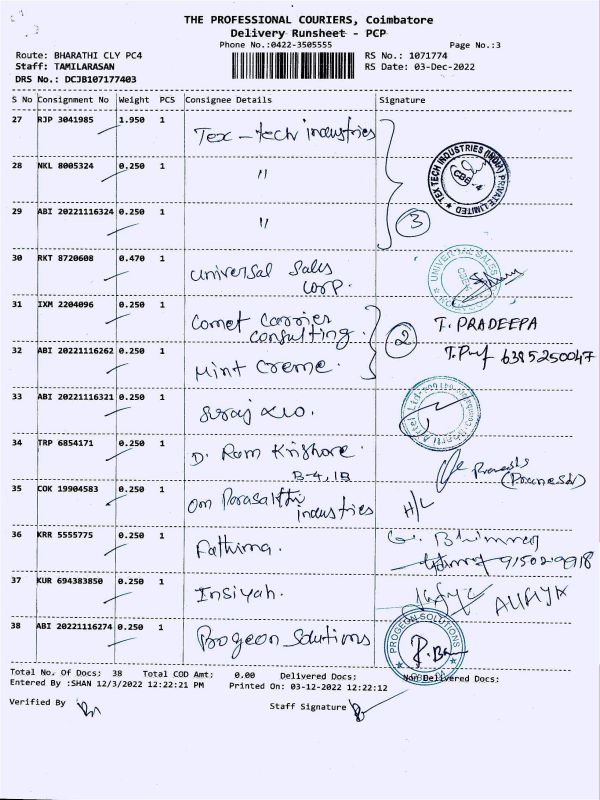 THE PROFESSIONAL COURIERS, Coimbatore
Delivery Runsheet - PCP
Phone No.:0422-3505555
Page No.:3
Route: BHARATHI CLY PC4
RS No.: 1071774
Staff: TAMILARASAN
RS Date: 03-Dec-2022
DRS No.: DCJB107177403
S No Consignment No Weight PCS Consignee Details Signature
27 RJP 3041985 1.950 1 Tex-tech industries
TEX TECH INDUSTRIES (INDIA) PRIVATE LIMITED
CBE-4
28 NKL 8005324 0.250 1 "
29 ABI 20221116324 0.250 1 " 3
30 RKT 8720608 0.470 1 universal Sales Corp.
UNIVERSAL SALES
31 IXM 2204096 0.250 1 Comet Carrier Consulting. 2 T. PRADEEPA
32 ABI 20221116262 0.250 1 Mint Creme. 6385250047
33 ABI 20221116321 0.250 1 Suraj
34 TRP 6854171 0.250 1 D. Ram Krishore.
B-4, 1B
35 COK 19904583 0.250 1 Om Parasakthi industries H/L
36 KRR 5555775 0.250 1 Fathima.
37 KUR 694383850 0.250 1 Insiyah.
38 ABI 20221116274 0.250 1 Progeon Solutions
PROGEON SOLUTIONS
Total No. Of Docs: 38 Total COD Amt: 0.00 Delivered Docs: Non Delivered Docs:
Entered By :SHAN 12/3/2022 12:22:21 PM Printed On: 03-12-2022 12:22:12
Verified By
Staff Signature